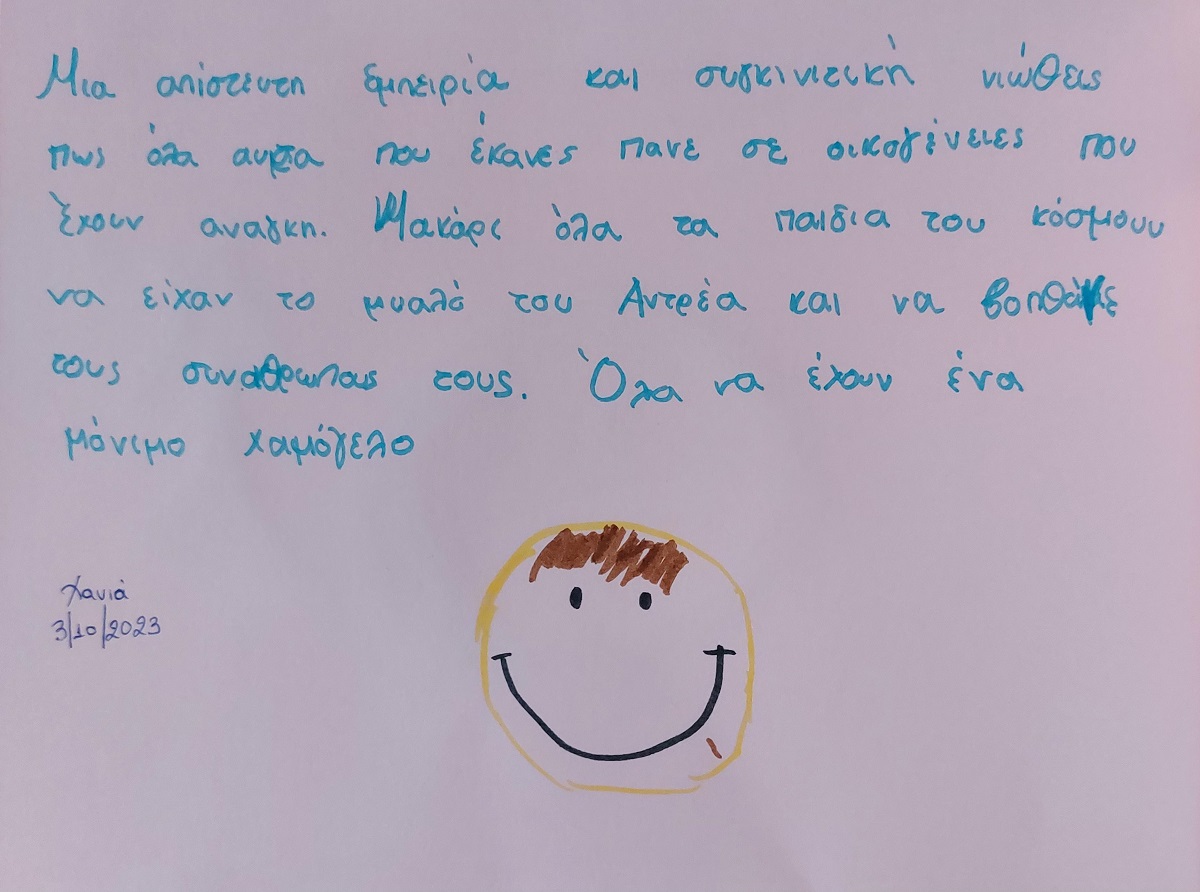 Μια απίστευτη εμπειρία και συγκινιτική νιώθεις
πως όλα αυτα που έκανες πανε σε οικογένειες που
έχουν αναγκη. Μακάρι όλα τα παιδια του κόσμουυ
να είχαν το μυαλό του Αντρέα και να βοηθάνε
τους συναθρωπους τους. Όλα να έχουν ένα
μόνιμο χαμόγελο
Χανιά
3/10/2023